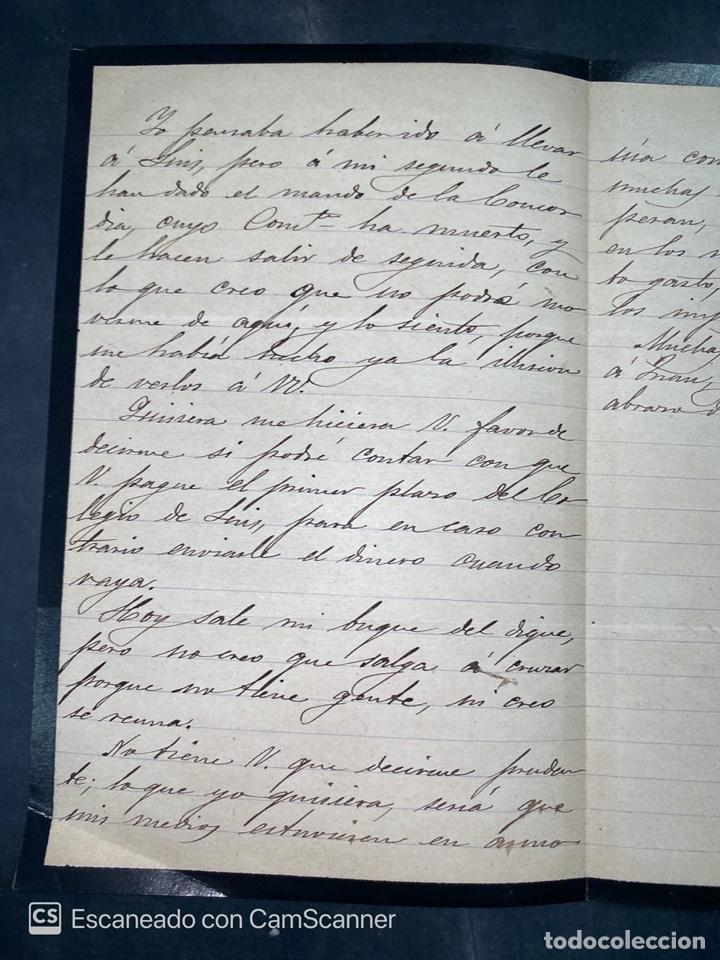 Yo pensaba haber ido á llevar
á Luis, pero á mi segundo le
han dado el mando de la Concor
dia, cuyo Comte ha muerto, y
le hacen salir de seguida, con
lo que creo que no podré mo
verme de aquí, y lo siento, porque
me había hecho ya la ilusion
de verlos á VV.
Quisiera me hiciera V. favor de
decirme si podré contar con que
V. pague el primer plazo del Co
legio de Luis, para en caso con
trario enviarle el dinero cuando
vaya.
Hoy sale mi buque del dique,
pero no creo que salga á cruzar
porque no tiene gente, ni creo
se reuna.
No tiene V. que decirme pruden
te; lo que yo quisiera, seria que
mis medios estuviesen en armo
nia con
muchas
peran,
en los
to gasto,
los imp
Mucha
á Juan,
abrazo d
CS Escaneado con CamScanner
todocoleccion